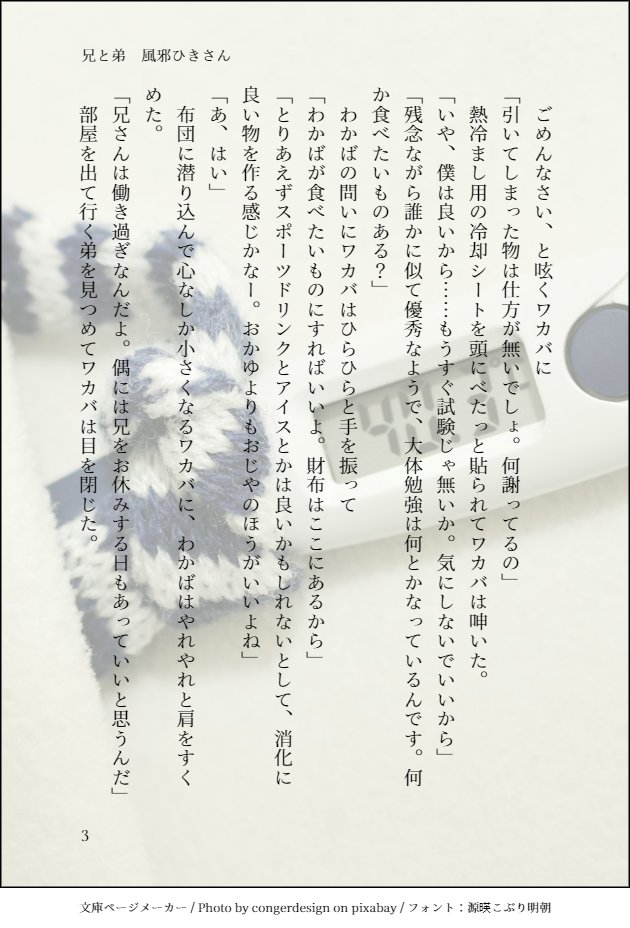 兄と弟　風邪ひきさん
　ごめんなさい、と呟くワカバに
「引いてしまった物は仕方が無いでしょ。何謝ってるの」
　熱冷まし用の冷却シートを頭にべたっと貼られてワカバは呻いた。
「いや、僕は良いから……もうすぐ試験じゃ無いか。気にしないでいいから」
「残念ながら誰かに似て優秀なようで、大体勉強は何とかなっているんです。何
か食べたいものある？」
　わかばの問いにワカバはひらひらと手を振って
「わかばが食べたいものにすればいいよ。財布はここにあるから」
「とりあえずスポーツドリンクとアイスとかは良いかもしれないとして、消化に
良い物を作る感じかなー。おかゆよりもおじやのほうがいいよね」
「あ、はい」
　布団に潜り込んで心なしか小さくなるワカバに、わかばはやれやれと肩をすく
めた。
「兄さんは働き過ぎなんだよ。偶には兄をお休みする日もあっていいと思うんだ」
　部屋を出て行く弟を見つめてワカバは目を閉じた。
3
文庫ページメーカー / Photo by congerdesign on pixabay / フォント：源暎こぶり明朝